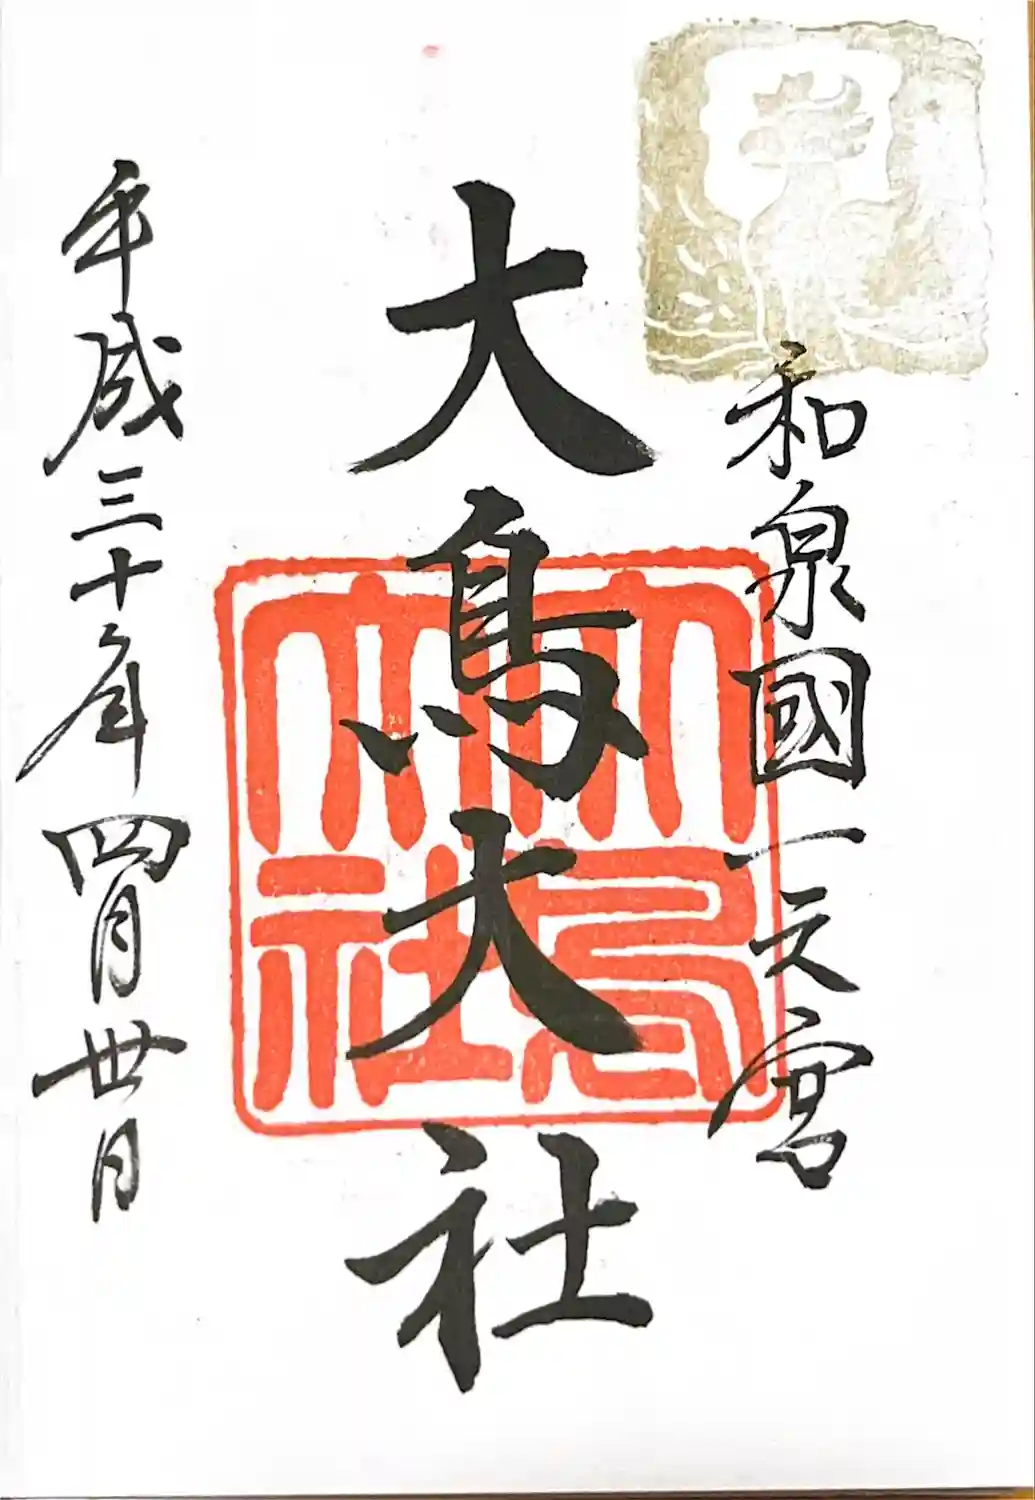 和泉國一之宮
大鳥大社
平成三十年四月丗日
大鳥
大社